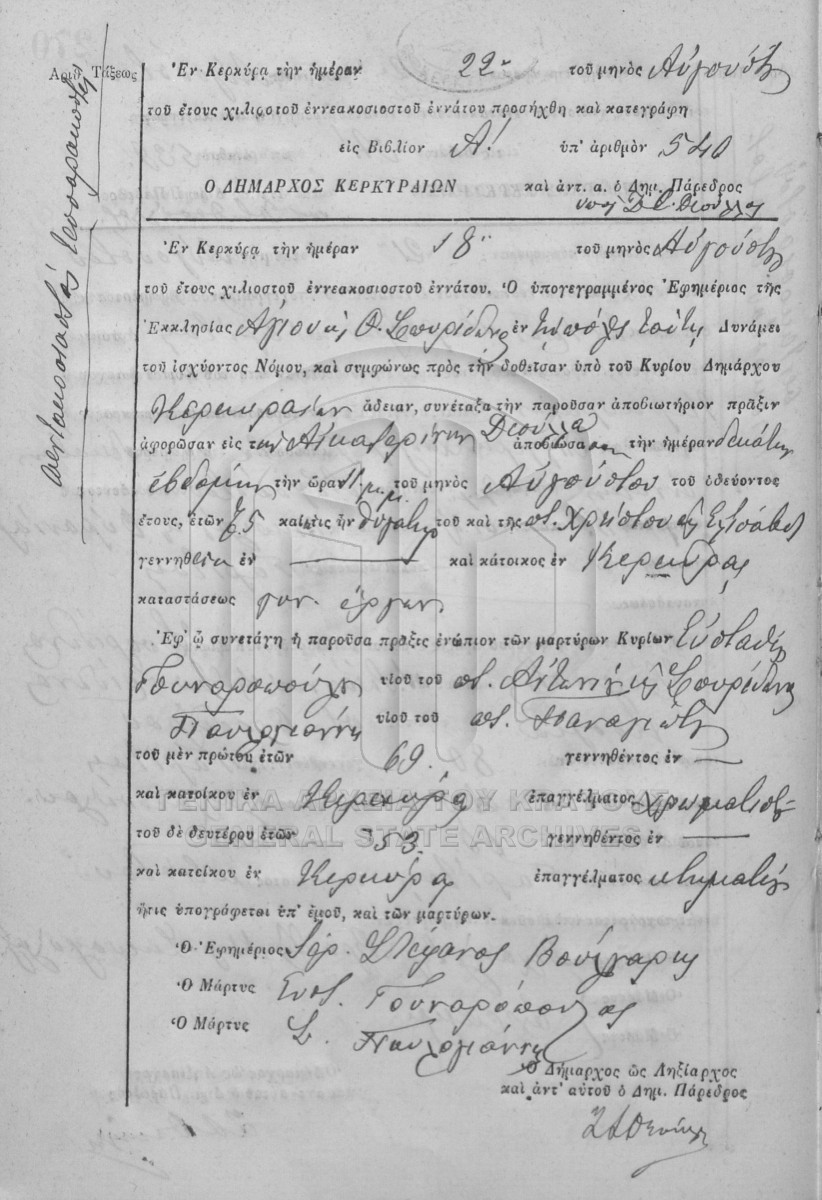 Ἀριθ. Τάξεως
πεντακοσιοστός τεσσαρακοστός
Ἐν Κερκύρᾳ τὴν ἡμέραν 22 τοῦ μηνὸς Αὐγούστου
τοῦ ἔτους χιλιοστοῦ ἐννεακοσιοστοῦ ἐννάτου προσήχθη καὶ κατεγράφη
εἰς Βιβλίον Α! ὑπ' ἀριθμὸν 540
Ὁ ΔΗΜΑΡΧΟΣ ΚΕΡΚΥΡΑΙΩΝ καὶ ἀντ. α. ὁ Δημ. Πάρεδρος
Ἐν Κερκύρᾳ τὴν ἡμέραν 18 τοῦ μηνὸς Αὐγούστου
τοῦ ἔτους χιλιοστοῦ ἐννεακοσιοστοῦ ἐννάτου. Ὁ ὑπογεγραμμένος Ἐφημέριος τῆς
Ἐκκλησίας Ἁγίου Σπυρίδωνος ἐν τῇ πόλει ταύτῃ Δυνάμει
τοῦ ἰσχύοντος Νόμου, καὶ συμφώνως πρὸς τὴν δοθεῖσαν ὑπὸ τοῦ Κυρίου Δημάρχου
Κερκυραίων ἄδειαν, συνέταξα τὴν παροῦσαν ἀποβιωτήριον πρᾶξιν
ἀφορῶσαν εἰς τὴν Αἰκατερίνην ἀποβιώσασαν τὴν ἡμέραν δεκάτην
ἑβδόμην τὴν ὥραν 11 μ.μ. τοῦ μηνὸς Αὐγούστου τοῦ ὁδεύοντος
ἔτους, ἐτῶν 65 καὶ εἰς ἣν θυγάτηρ τοῦ καὶ τῆς ποτ. Χρήστου Ἐλισάβετ
γεννηθεῖσα ἐν — καὶ κάτοικος ἐν Κερκύρᾳ
καταστάσεως γυν. ἔργων
Ἐφ' ᾧ συνετάγη ἡ παροῦσα πρᾶξις ἐνώπιον τῶν μαρτύρων Κυρίων Εὐσταθίου
Γουναροπούλου υἱοῦ τοῦ ποτ. Ἀντωνίου καὶ Σπυρίδωνος
Παυλογιάννη υἱοῦ τοῦ ποτ. Παναγιώτου
τοῦ μὲν πρώτου ἐτῶν 69. γεννηθέντος ἐν —
καὶ κατοίκου ἐν Κερκύρᾳ ἐπαγγέλματος χρωματιστοῦ
τοῦ δὲ δευτέρου ἐτῶν 53. γεννηθέντος ἐν —
καὶ κατοίκου ἐν Κερκύρᾳ ἐπαγγέλματος κτηματίου
ἥτις ὑπογράφεται ὑπ' ἐμοῦ, καὶ τῶν μαρτύρων.
Ὁ Ἐφημέριος Ἱερ. Στέφανος Βούλγαρης
Ὁ Μάρτυς Ευστ. Γουναρόπουλος
Ὁ Μάρτυς Σ. Παυλογιάννης
Ὁ Δήμαρχος ὡς Ληξίαρχος
καὶ ἀντ' αὐτοῦ ὁ Δημ. Πάρεδρος
ΓΕΝΙΚΑ ΑΡΧΕΙΑ ΤΟΥ ΚΡΑΤΟΥΣ
GENERAL STATE ARCHIVES